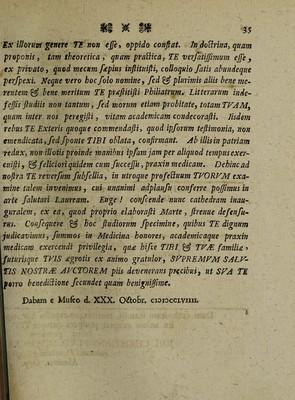 35
Ex illorum genere TE non esse, oppido constat. In doctrina, quam
proponis, tam theoretica, quam practica, TE versatissimum esse,
ex privato, quod mecum sæpius instituisti, colloquio satis abundeque
perspexi. Neque vero hoc solo nomine, sed & plurimis aliis bene me-
rentem & bene meritum TE præstitisti Philiatrum. Litterarum inde-
fessis studiis non tantum, sed morum etiam probitate, totam TVAM,
quam inter nos peregisti, vitam academicam condecorasti. Iisdem
rebus TE Exteris quoque commendasti, quod ipsorum testimonia, non
emendicata, sed sponte TIBI oblata, confirmant. Ab illis in patriam
redux, non illotis proinde manibus ipsam jam per aliquod tempus exer-
cuisti, & feliciori quidem cum successu, praxin medicam. Dehinc ad
nostra TE reversum subsellia, in utroque profectuum TVORVM exa-
mine talem invenimus, cui unanimi adplausu conferre possimus in
arte salutari Lauream. Euge! conscende nunc cathedram inau-
guralem, ex ea, quod proprio elaborasti Marte, strenue defensu-
rus. Consequere & hoc studiorum specimine, quibus TE dignum
judicavimus, summos in Medicina honores, academicaque praxin
medicam exercendi privilegia, quæ hisce TIBI & TVÆ familiæ,
futurisque TVIS ægrotis ex animo gratulor, SVPREMVM SALV-
TIS NOSTRÆ AVCTOREM piis devenerans precibus, ut SVA TE
porro benedictione secundet quam benignissime.
Dabam e Museo d. XXX. Octobr. cIɔIɔccLVIIII.